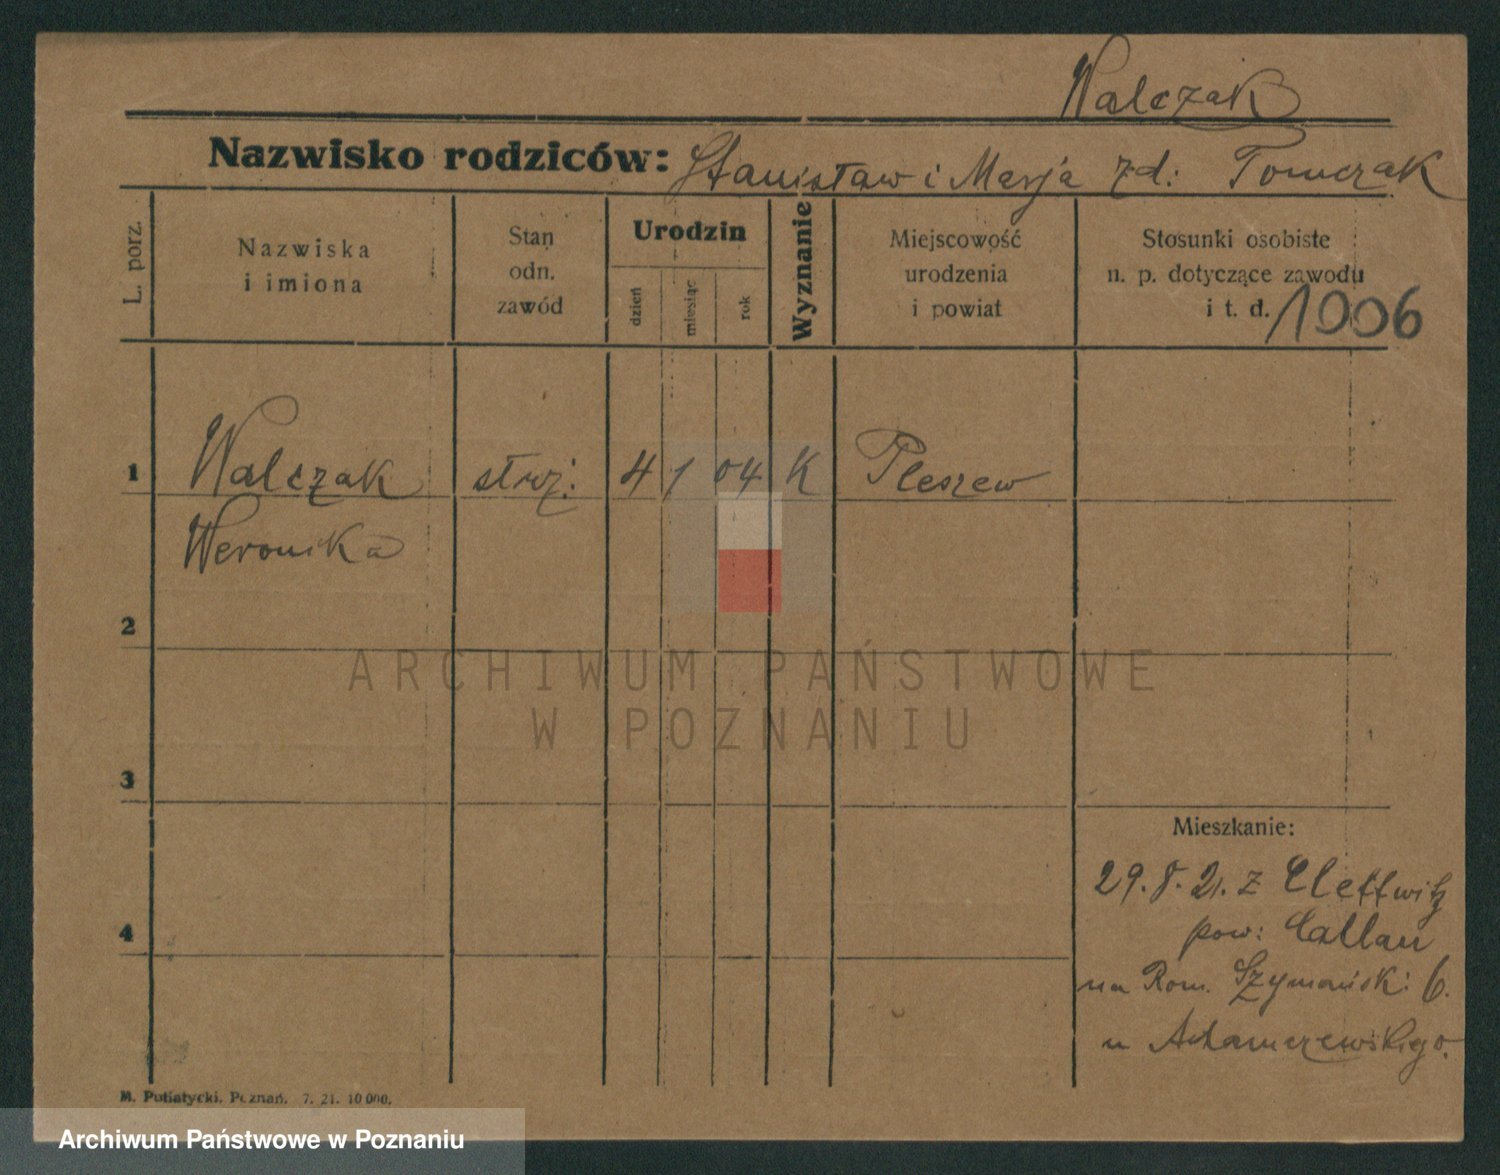 Walczak
Nazwisko rodziców: Stanisław i Marja zd: Tomczak
L. porz.
Nazwiska
i imiona
Stan
odn.
zawód
Urodzin
dzień
miesiąc
rok
Wyznanie
Miejscowość
urodzenia
i powiat
Stosunki osobiste
n. p. dotyczące zawodu
i t. d.
1906
1 Walczak służ: 4 1 04 K Pleszew
Weronika
2
3
4
Mieszkanie:
29.8.21. z Clettwitz
pow: Callau
na Rom. Szymański: 6.
u Adamczewskiego.
M. Putiatycki, Poznań. 7. 21. 10 000.
ARCHIWUM PAŃSTWOWE
W POZNANIU
Archiwum Państwowe w Poznaniu